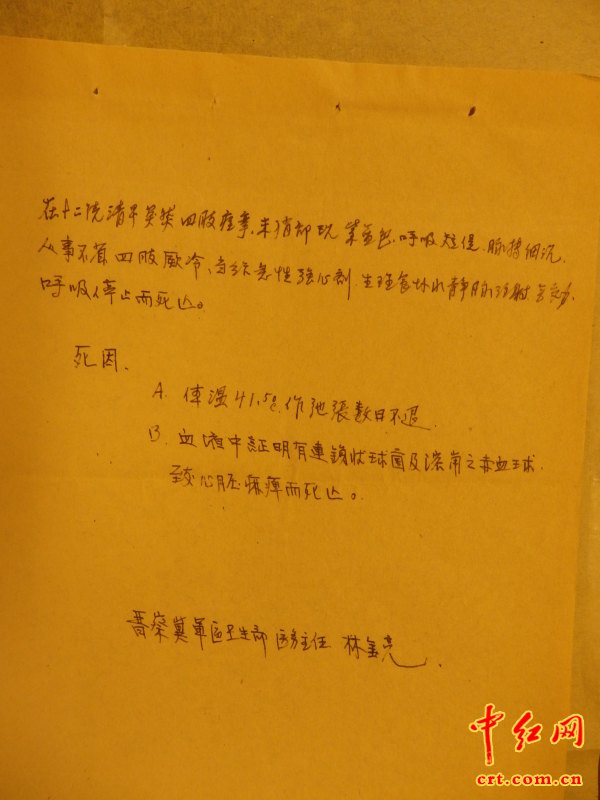 在十二院清早突然四肢痙攣,末梢部现紫蓝色,呼吸短促,脉搏细沉,
人事不省四肢厥冷,急性强心剂,生理食盐水静脉注射
呼吸停止而死亡。
死因.
A. 体温41.5℃作弛張数日不退
B. 血液中証明有連鎖状球菌及溶崩之赤血球.
致心脏麻痺而死亡。
晋察冀軍區卫生部医务主任 林金亮.
中红网
crt.com.cn